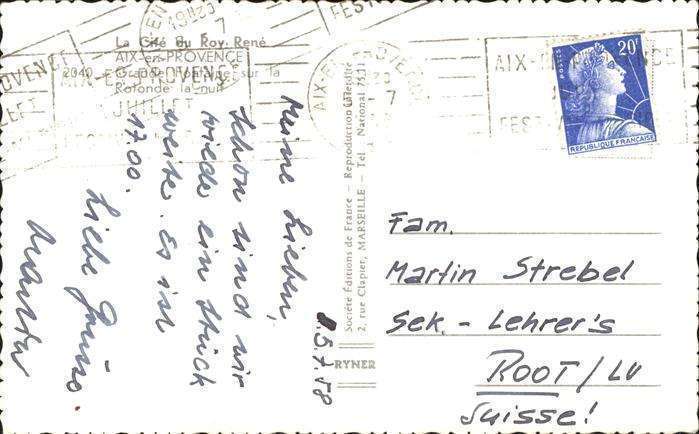 La Cité du Roy René
AIX-en-PROVENCE
2040 - Grande Fontaine sur la
Rotonde la nuit
AIX-EN-PROVENCE
JUILLET
PROVENCE
AIX-EN-PROVENCE
FEST
20F
POSTES
REPUBLIQUE FRANÇAISE
Meine Lieben,
Schon sind wir
wieder ein Stück
weiter. Es ist
17.00.
Liebe Grüsse
Société Éditions de France - Reproduction Interdite
2, rue Clapier, MARSEILLE - Tel. National 75.11
RYNER
5.7.58
Fam.
Martin Strebel
Sek. - Lehrer's
ROOT / LU
Suisse!